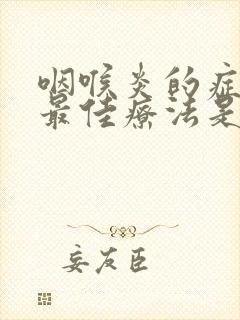 咽喉炎的症
最佳疗法是
妄友臣